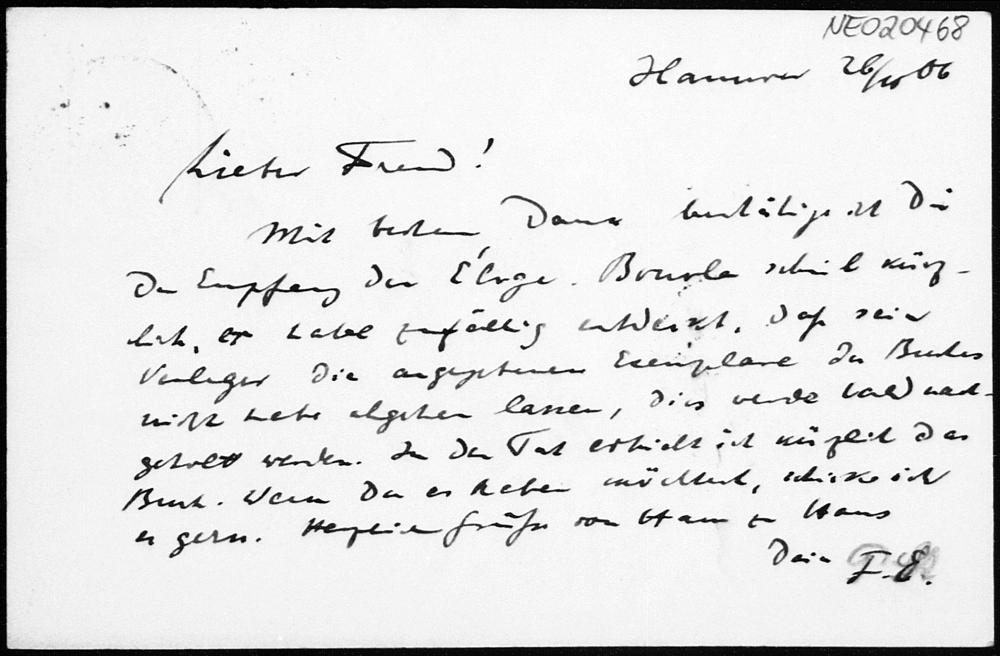 NE020468
Hannover 26/IV 06
Lieber Freund!
Mit bestem Dank bestätige ich Dir
Den Empfang der Éloge. schrieb kürz-
lich, er habe zufällig entdeckt, daß sein
Verleger die angegebenen Exemplare des Buches
nicht habe abgehen lassen, dies werde bald nach-
geholt werden. In der Tat erhielt ich kürzlich das
Buch. Wenn Du es haben möchtest, schicke ich
es gern. Herzliche Grüße von Haus zu Haus
Dein F. E.